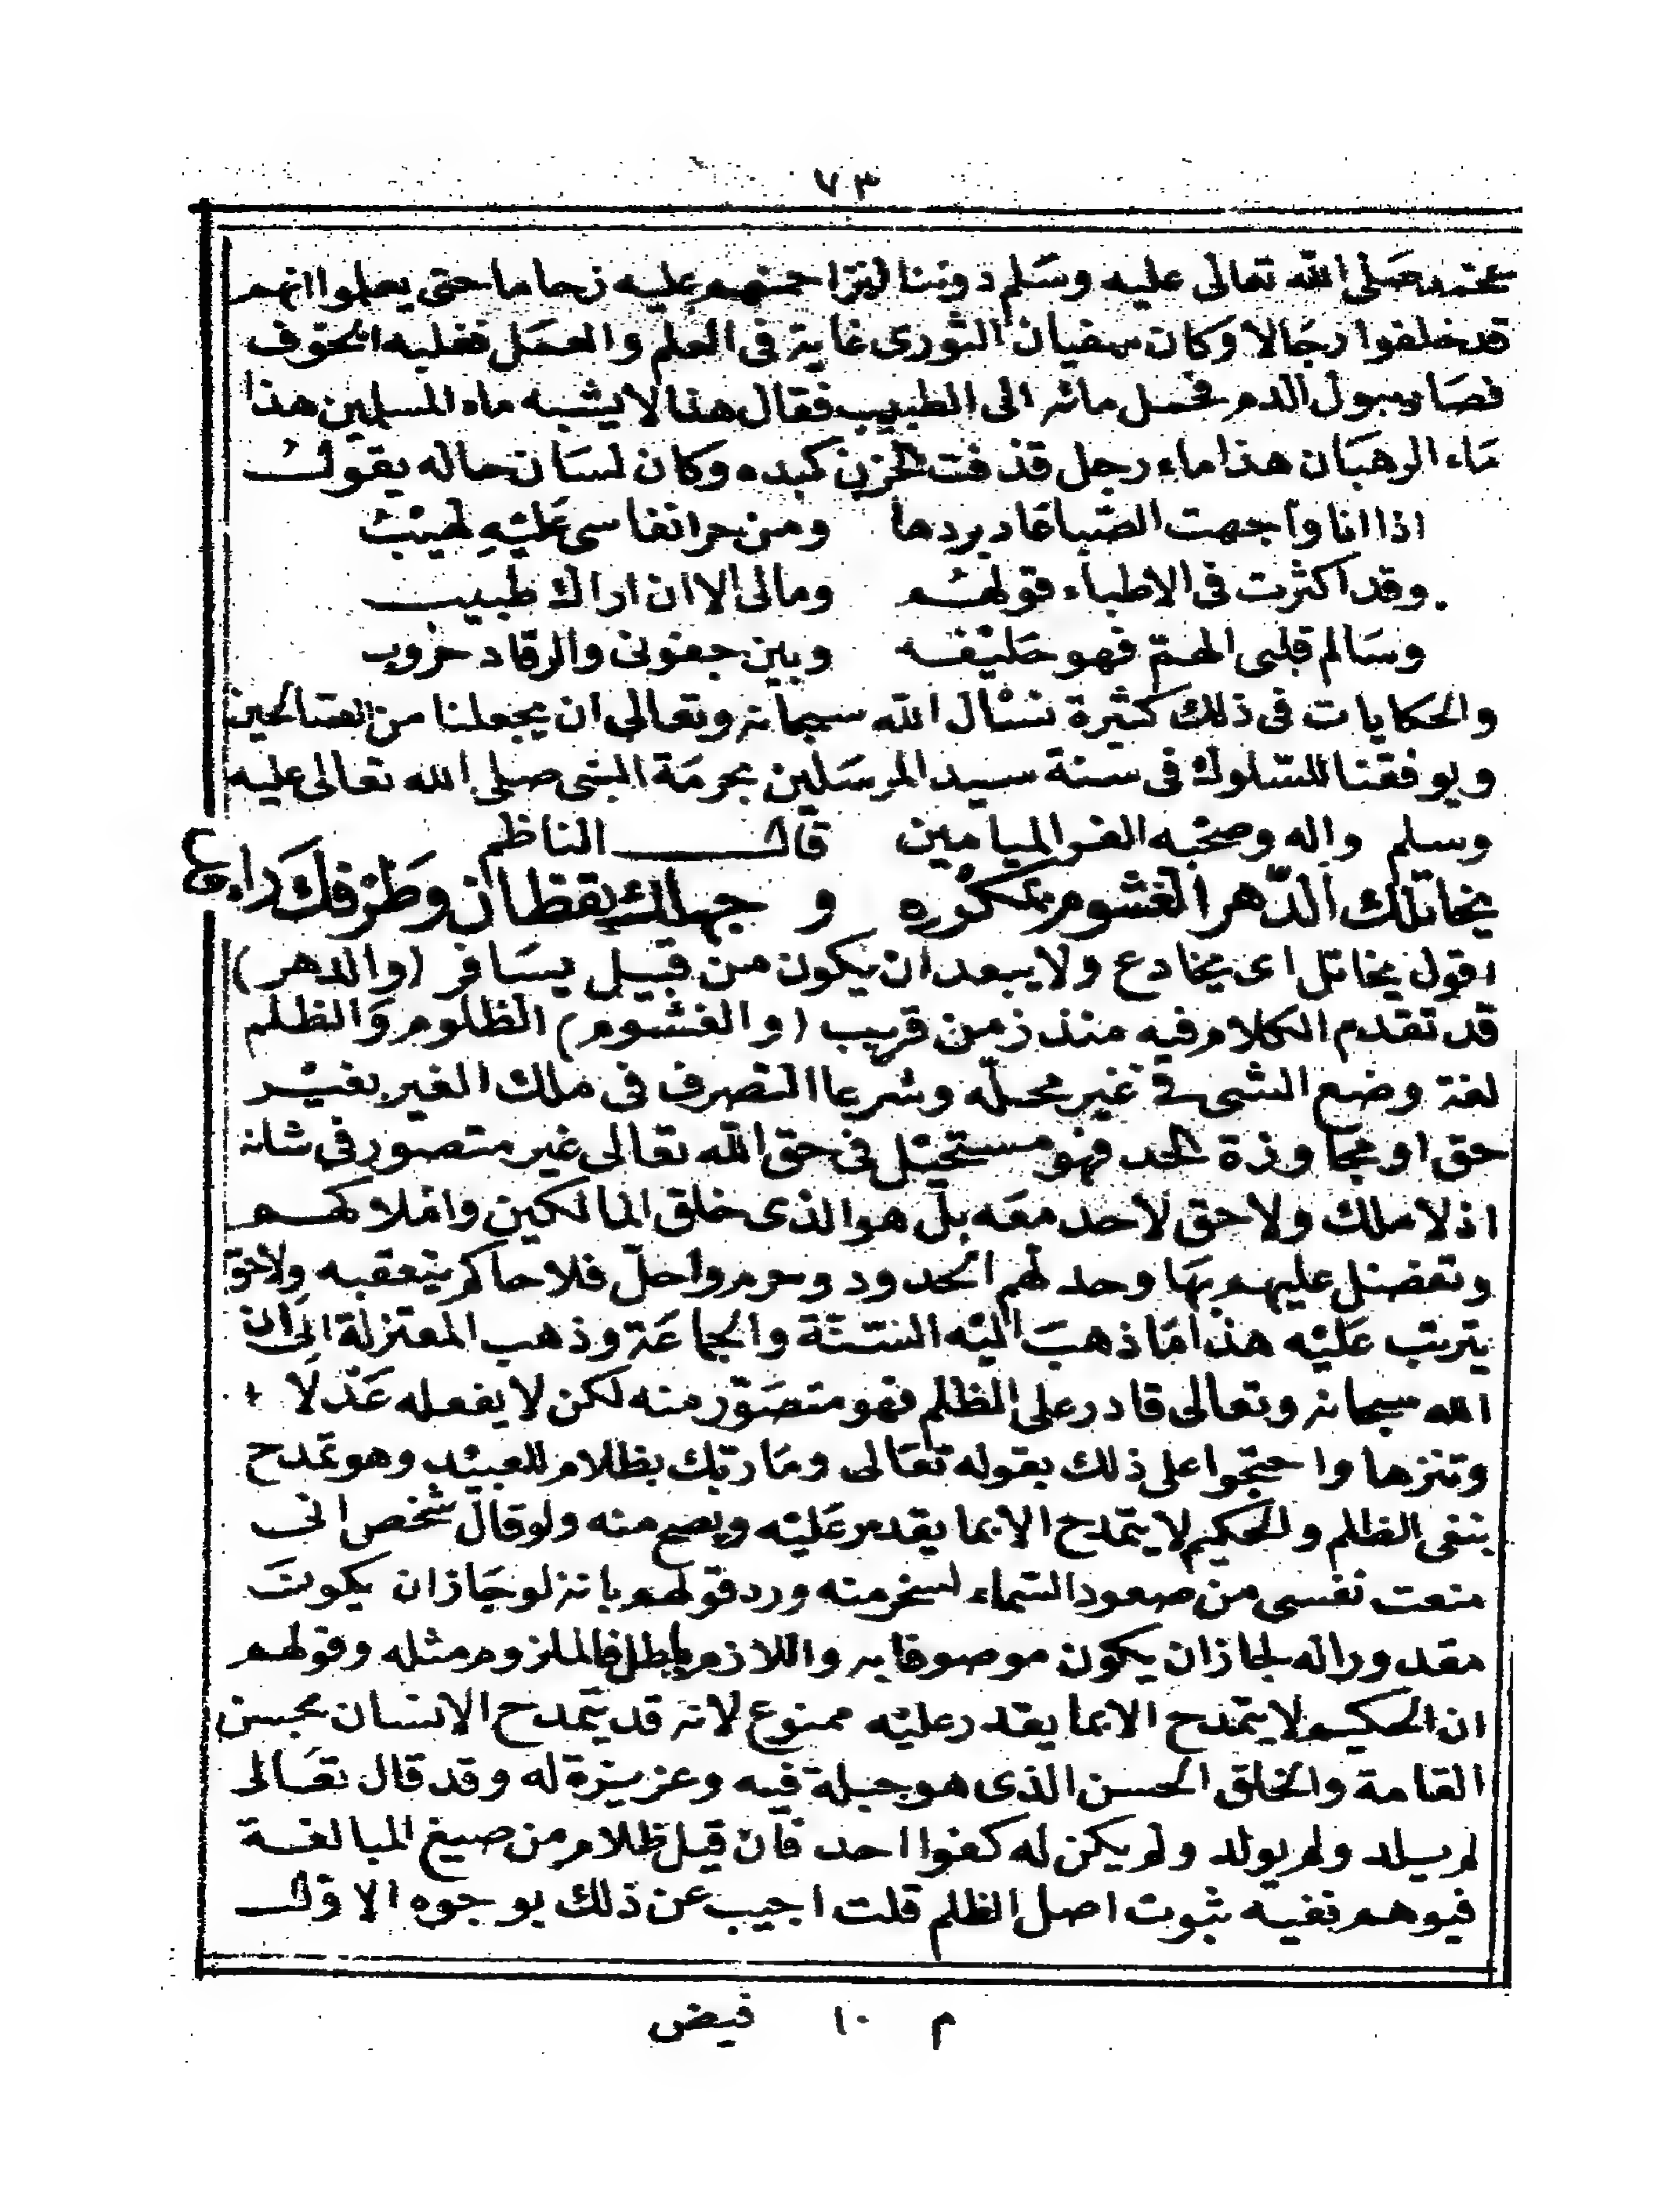 ٧٣
محمد صلى الله تعالى عليه وسلم دوننا لنزاحمنهم عليه زحاما حتى يعلموا انهم
قد خلفوا رجالا وكان سفيان الثورى غاية فى العلم والعمل فغلبه الخوف
فصار يبول الدم فحمل مائه الى الطبيب فقال هذا لا يشبه ماء المسلمين هذا
ماء الرهبان هذا ماء رجل قد فتت الحزن كبده وكان لسان حاله يقول
اذا انا واجهت الصبا عاد بردها ومن حر انفاسى عليه لهيب
وقد اكثرت فى الاطباء قولهم ومالى الا ان اراك طبيب
وسالم قلبى الهم فهو حليفه وبين جفونى والرقاد حروب
والحكايات فى ذلك كثيرة نسئال الله سبحانه وتعالى ان يجعلنا من الصالحين
ويوفقنا للسلوك فى سنة سيد المرسلين بحرمة النبى صلى الله تعالى عليه
وسلم واله وصحبه الغر الميامين قال الناظم
يخاتلك الدّهر الغشوم بمكرْه و جهلك يقظان وطرفك راقع
اقول يخاتل اى يخادع ولا يبعد ان يكون من قبيل يسافر (والدهر)
قد تقدم الكلام فيه منذ زمن قريب (والغشوم) الظلوم والظلم
لغة وضع الشى فى غير محلّه وشرعا التصرف فى ملك الغير بغير
حق او مجاوزة الحد فهو مستحيل فى حق الله تعالى غير متصور فى شانه
اذ لا ملك ولا حق لاحد معه بل هو الذى خلق المالكين واملاكهم
وتفضل عليهم بها وحد لهم الحدود وحرم واحلّ فلا حاكم يتعقبه ولا حق
يترتب عليه هذا ما ذهب اليه السنّة والجماعة وذهب المعتزلة الى ان
الله سبحانه وتعالى قادر على الظلم فهو متصوّر منه لكن لا يفعله عَدْلًا
وتنزها واحتجوا على ذلك بقوله تعالى وما ربك بظلام للعبيد وهو تمدح
بنفى الظلم والحكيم لا يتمدح الا بما يقدر عليه ويصح منه ولو قال شخص انى
منعت نفسى من صعود السماء لسخر منه ورد قولهم بانه لو جاز ان يكون
مقدورا له لجاز ان يكون موصوفا به واللازم باطل فالملزوم مثله وقولهم
ان الحكيم لا يتمدح الا بما يقدر عليه ممنوع لانه قد يتمدح الانسان بحسن
القامة والخلق الحسن الذى هو جبلة فيه وعزيزة له وقد قال تعالى
لم يلد ولم يولد ولم يكن له كفوا احد فان قيل ظلام من صيغ المبالغة
فيوهم نفيه ثبوت اصل الظلم قلت اجيب عن ذلك بوجوه الاول
م ١٠ فيض